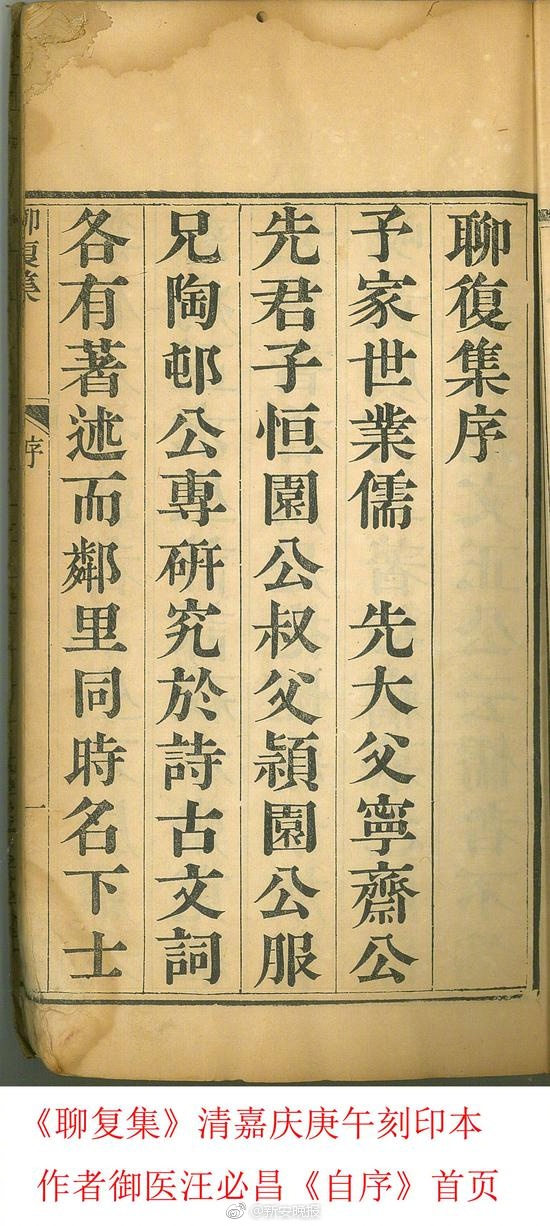 聊復集序
予家世業儒　先大父寧齋公
先君子恒園公叔父潁園公服
兄陶邨公專研究於詩古文詞
各有著述而鄰里同時名下士
聊復集
序
一
《聊复集》清嘉庆庚午刻印本
作者御医汪必昌《自序》首页
@新安晚报